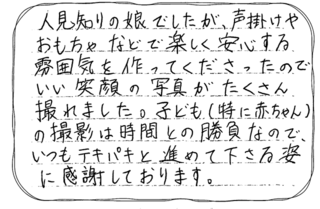 人見知りの娘でしたが、声掛けや
おもちゃなどで楽しく安心する
雰囲気を作ってくださったので
いい笑顔の写真がたくさん
撮れました。子ども(特に赤ちゃん)
の撮影は時間との勝負なので、
いつもテキパキと進めて下さる姿
に感謝しております。